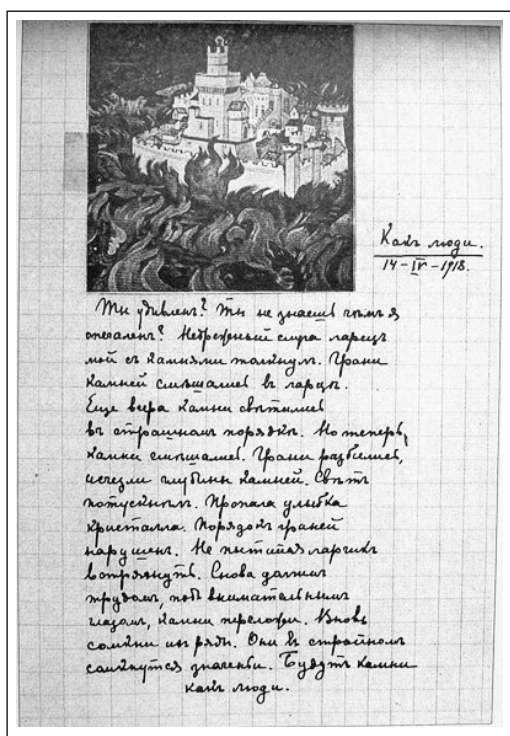 Какъ люди.
14 – IV – 1918.
Ты удивленъ? Ты не знаешь чѣмъ я
опечаленъ? Небрежный слуга ларецъ
мой съ камнями толкнулъ. Грани
камней смѣшались въ ларцѣ.
Еще вчера камни свѣтились
въ страшномъ порядкѣ. Но теперь,
камни смѣшались. Грани разбились,
исчезли глубины камней. Свѣтъ
потускнѣлъ. Пропала улыбка
кристалла. Порядокъ граней
нарушенъ. Не пытайся ларчикъ
встряхнуть. Снова долгимъ
трудомъ, подъ внимательнымъ
глазомъ, камни переложи. Вновь
сомкни ихъ рядъ. Они въ стройномъ
сомкнутся значеньи. Будутъ камни
какъ люди.